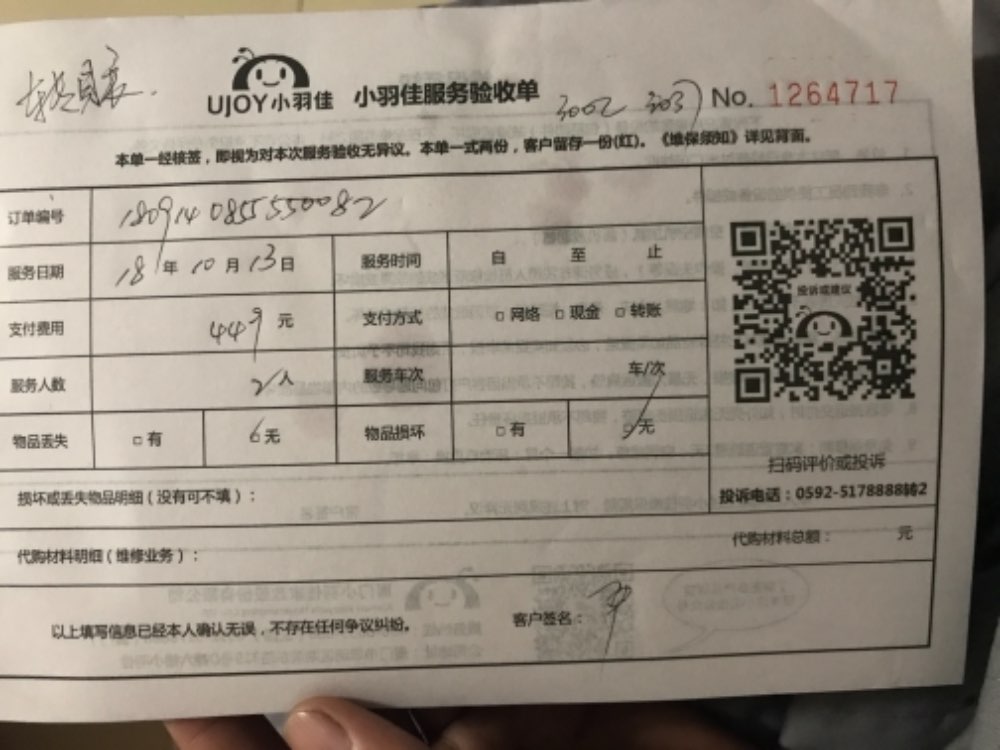 UJOY小羽佳 小羽佳服务验收单 3002 303 No. 1264717
本单一经核签，即视为对本次服务验收无异议。本单一式两份，客户留存一份(红)。《维保须知》详见背面。
订单编号 180914085555082
服务日期 18年10月13日 服务时间 自 至 止
支付费用 449元 支付方式 □网络 □现金 □转账
服务人数 2人 服务车次 车/次
物品丢失 □有 无 物品损坏 □有 □无
投诉或建议
扫码评价或投诉
投诉电话：0592-5178888转2
损坏或丢失物品明细（没有可不填）：
代购材料明细（维修业务）： 代购材料总额： 元
以上填写信息已经本人确认无误，不存在任何争议纠纷。 客户签名：